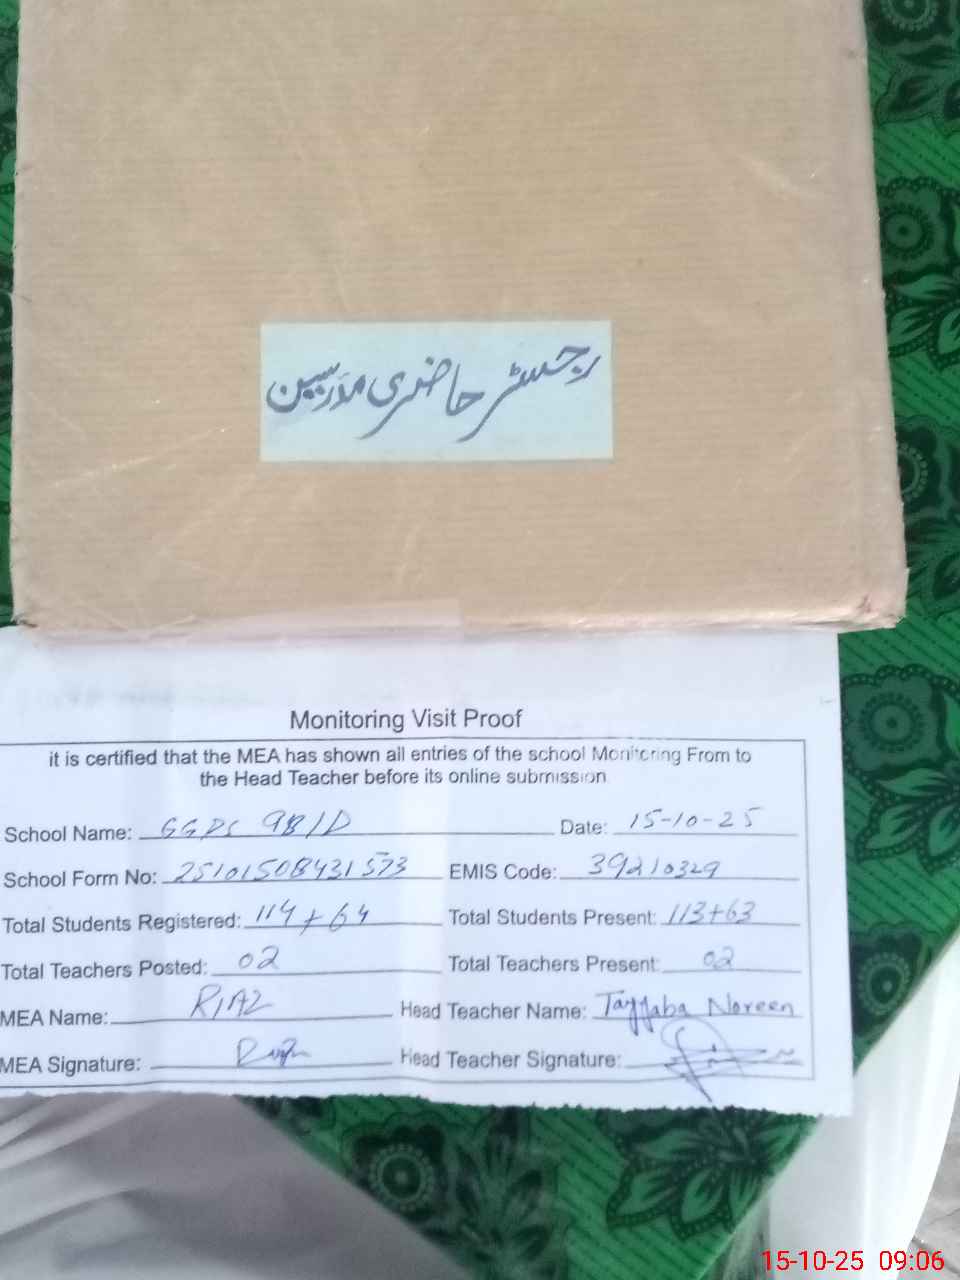 رجسٹر حاضری مدرسین
Monitoring Visit Proof
it is certified that the MEA has shown all entries of the school Monitoring From to
the Head Teacher before its online submission
School Name: GGPS 98/D Date: 15-10-25
School Form No: 25101508431573 EMIS Code: 39210329
Total Students Registered: 114+64 Total Students Present: 113+63
Total Teachers Posted: 02 Total Teachers Present: 02
MEA Name: RIAZ Head Teacher Name: Tayyaba Noreen
MEA Signature: Head Teacher Signature:
15-10-25 09:06